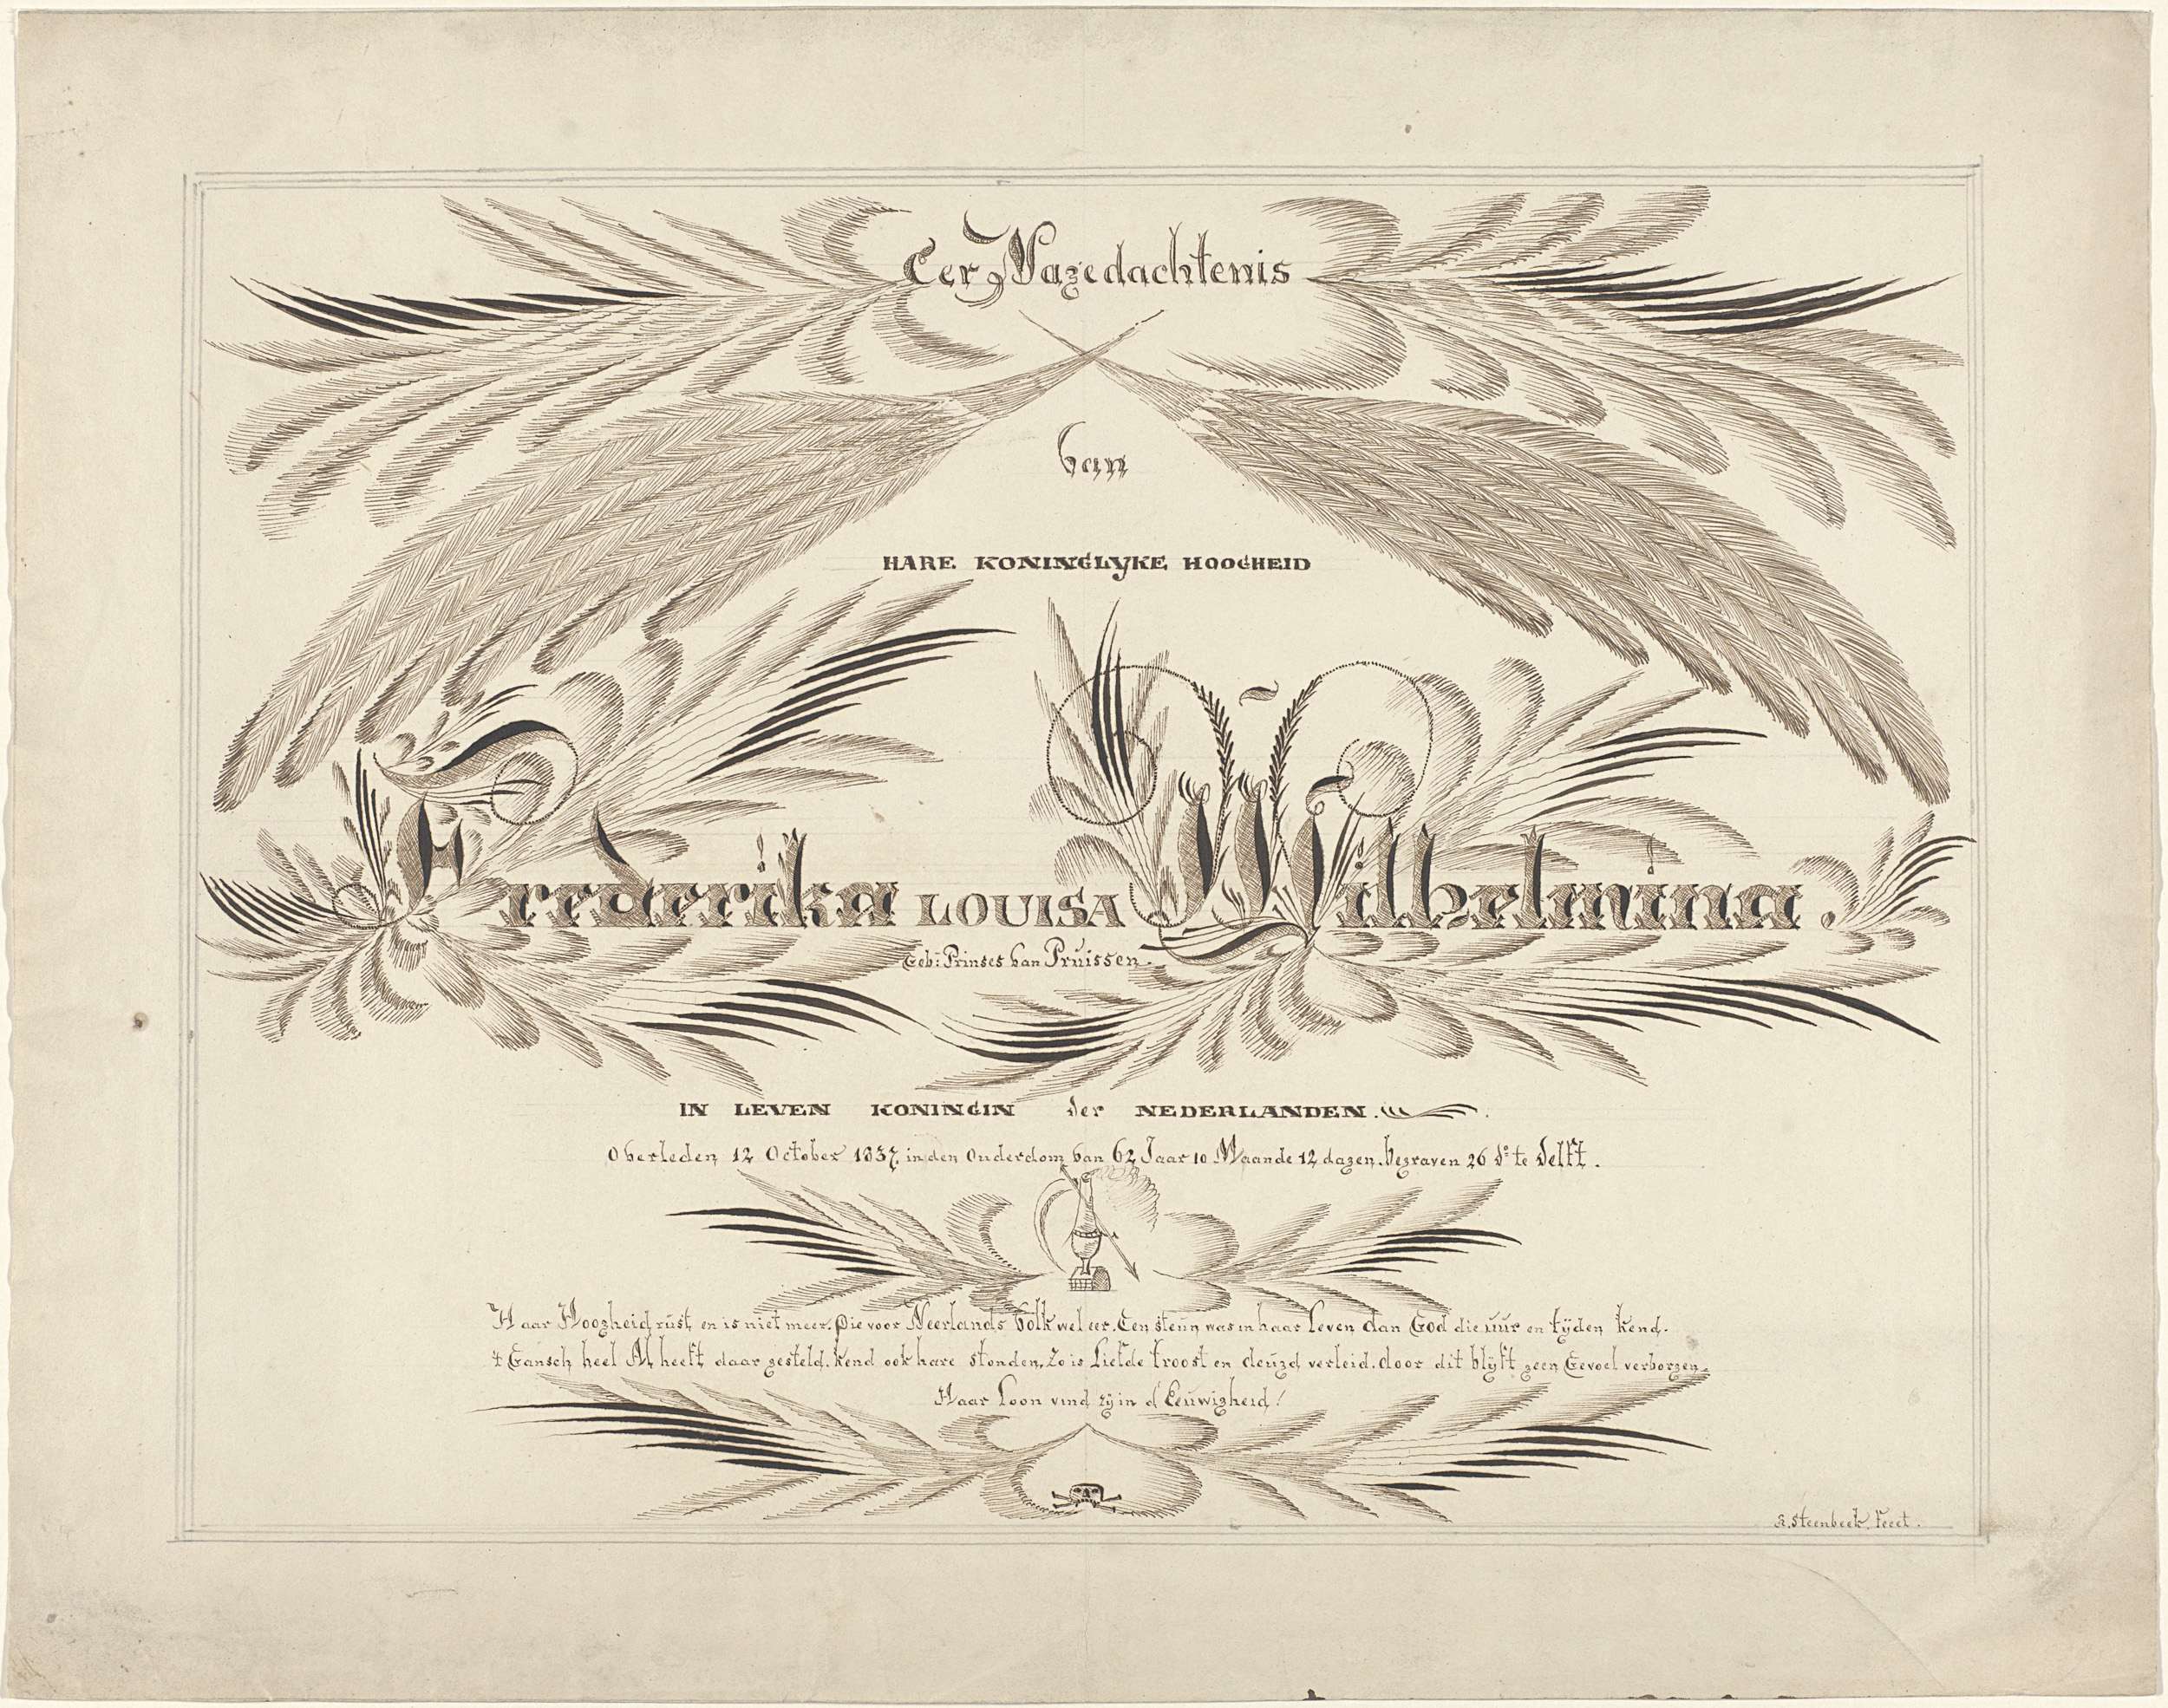 Ter Nagedachtenis
van
HARE KONINGLYKE HOOGHEID
Frederika LOUISA Wilhelmina.
Geb: Prinses van Pruissen.
IN LEVEN KONINGIN der NEDERLANDEN.
Overleden 12 October 1837, in den Ouderdom van 62 Jaar 10 Maande 12 dagen. begraven 26 do te Delft.
Haar Hoogheid rust en is niet meer. Die voor Neerlands Volk wel eer. Een steun was in haar Leven dan God die uur en tyden kend.
't Gansch heel Al heeft daar gesteld. kend ook hare stonden. Zo is Liefde troost en deugd verleid. door dit blyft geen Gevoel verborgen
Haar Loon vind zy in d'Eeuwigheid!
Steenbeek. Fecet.